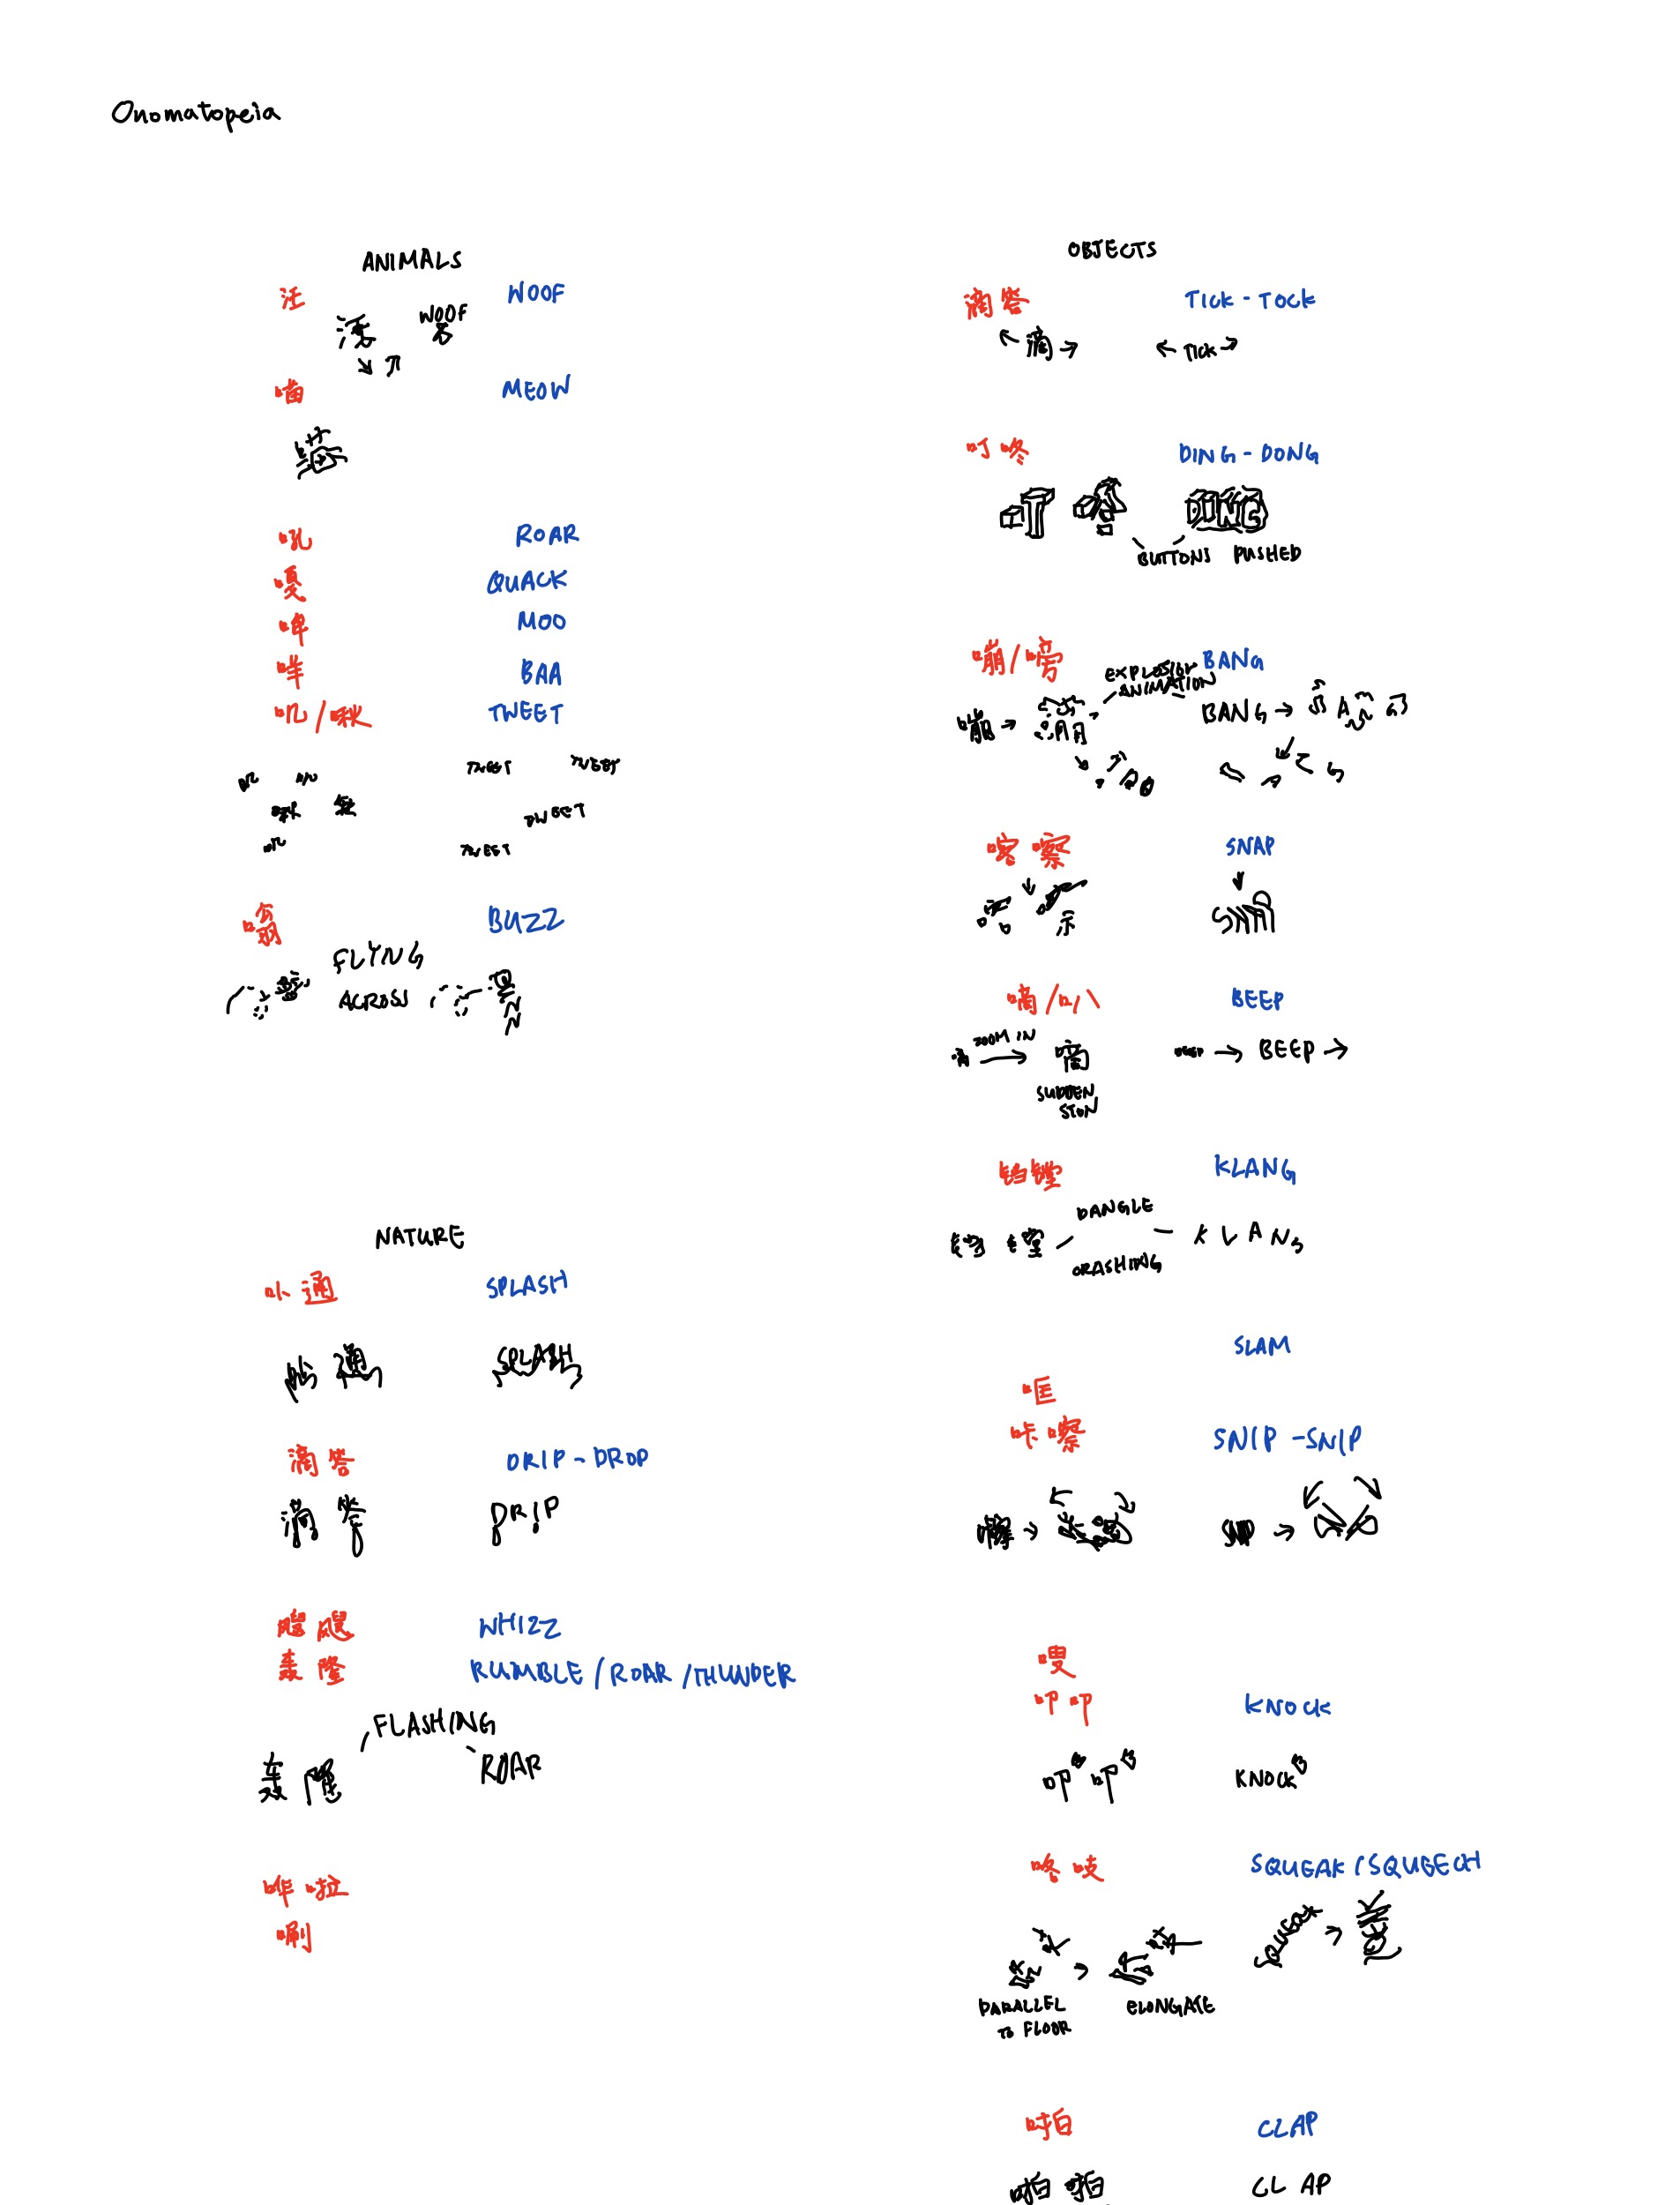 Onomatopeia
ANIMALS
汪 WOOF
汪 WOOF
喵 MEOW
吼 ROAR
嘎 QUACK
哞 MOO
咩 BAA
叽/啾 TWEET
叽 叽 TWEET TWEET
啾 TWEET
叽 TWEET
嗡 BUZZ
FLYNG
ACROSS
NATURE
卟通 SPLASH
SPLASH
滴答 DRIP-DROP
滴答 DRIP
飕飕 WHIZZ
轰隆 RUMBLE/ROAR/THUNDER
FLASHING
轰隆 ROAR
哗啦
唰
OBJECTS
滴答 TICK-TOCK
滴 TICK
叮咚 DING-DONG
叮咚 DING
BUTTONS PUSHED
嘣/嗙 BANG
EXPLOSION
ANIMATION
嘣 BANG
喀嚓 SNAP
SNAP
嘀/叭 BEEP
ZOOM IN
嘀 嘀 BEEP BEEP
SUDDEN
STOP
铛镗 KLANG
DANGLE
KLANG
CRASHING
SLAM
哐
咔嚓 SNIP-SNIP
SNIP
嗖
叩叩 KNOCK
叩叩 KNOCK
咚吱 SQUEAK/SQUEECH
SQUEAK
PARALLEL
TO FLOOR
ELONGATE
啪 CLAP
啪啪 CL AP